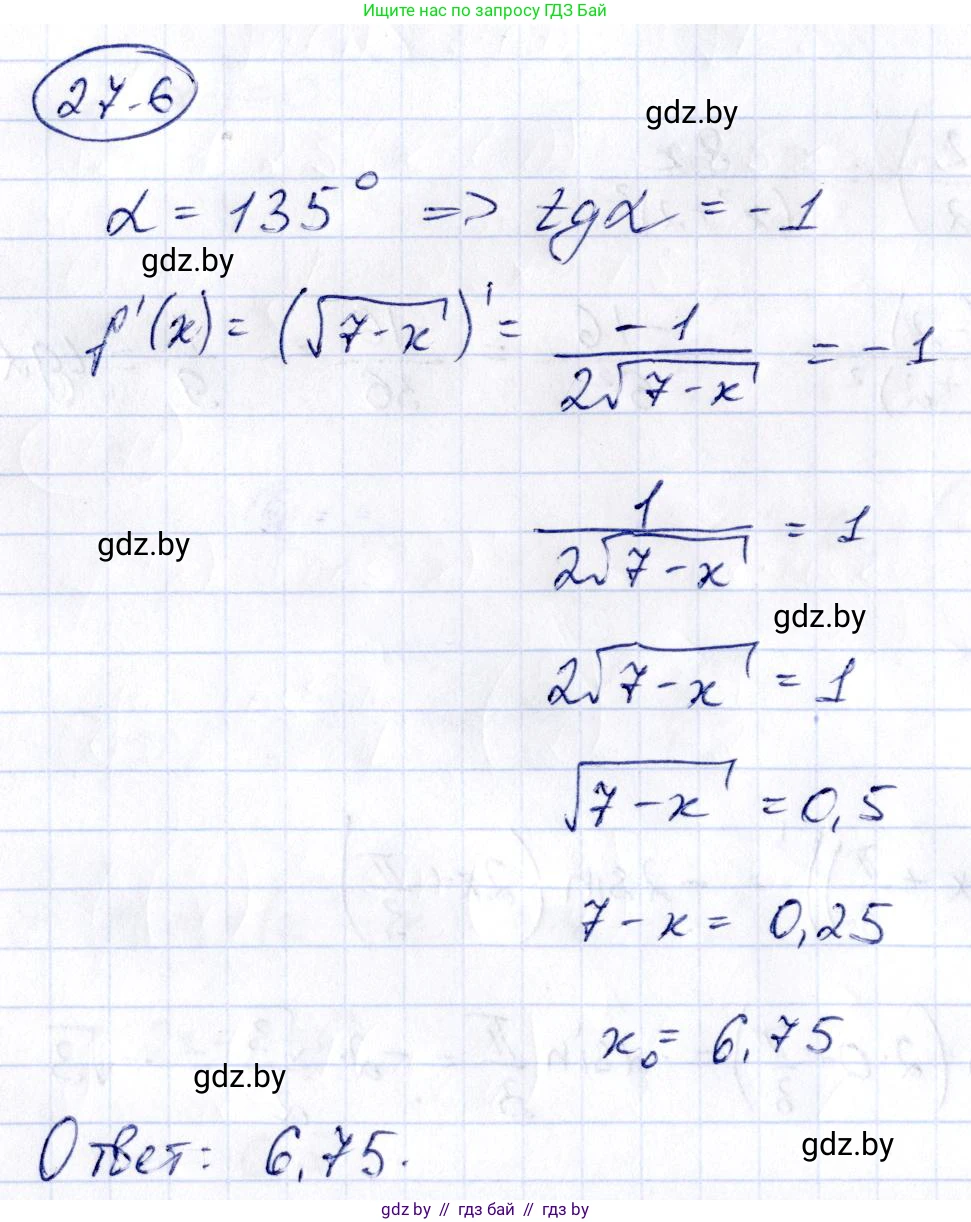 Ищите нас по запросу ГДЗ Бай
27-6
gdz.by
α = 135° => tgα = -1
gdz.by
f'(x) = (√(7-x))' = -1/(2√(7-x)) = -1
1/(2√(7-x)) = 1
gdz.by
gdz.by
2√(7-x) = 1
√(7-x) = 0,5
7-x = 0,25
x₀ = 6,75
gdz.by
Ответ: 6,75.
gdz.by
gdz.by // гдз бай // гдз by